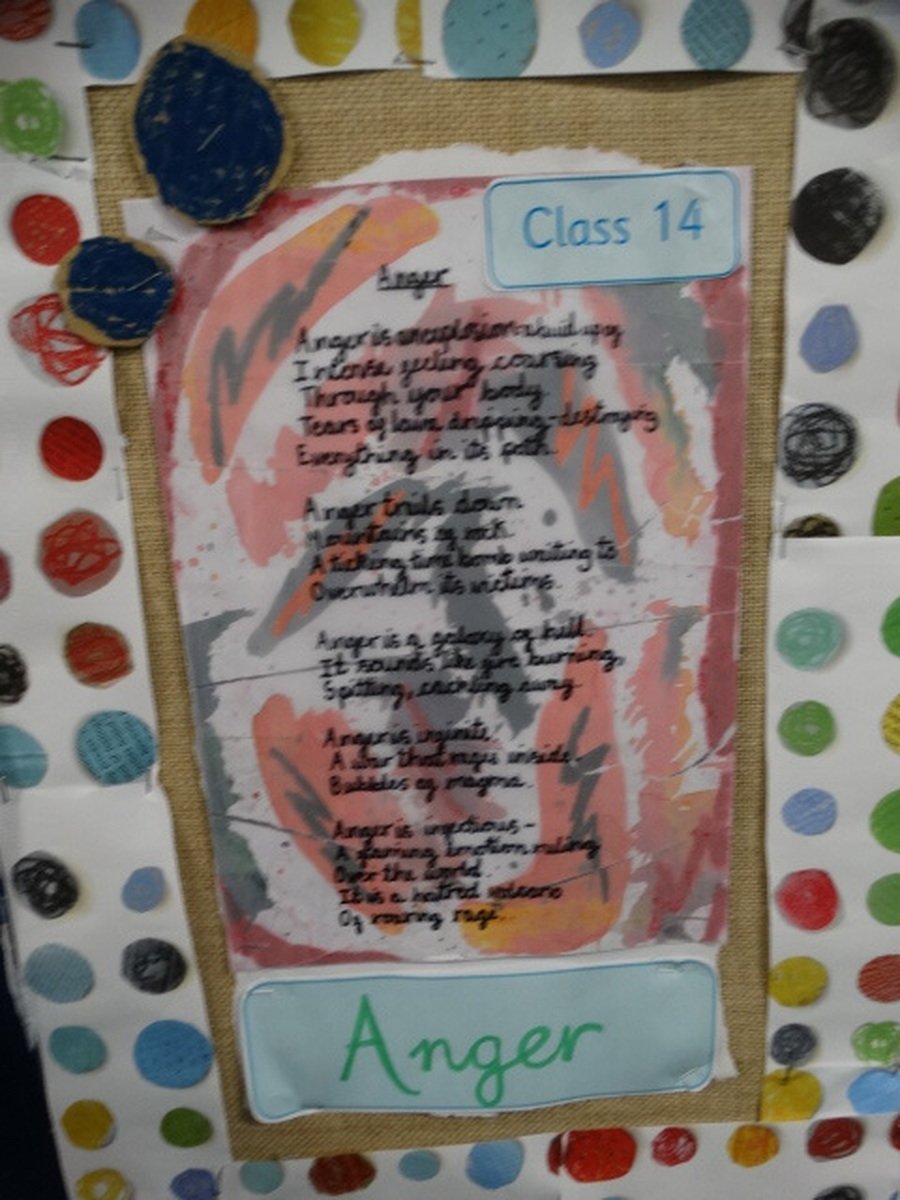 Class 14
Anger
Anger is an explosion - a build up of
Intense feeling coursing
Through your body.
Tears of lava dripping - destroying
Everything in its path.
Anger trails down
Mountains of rock.
A ticking time bomb waiting to
Overwhelm its victims.
Anger is a galaxy of hell.
It sounds like fire burning,
Spitting, crackling away.
Anger is infinite.
A war that rages inside.
Bubbles of magma.
Anger is infectious -
A flaming emotion ruling
Over the world.
It is a hatred volcano
Of roaring rage.
Anger